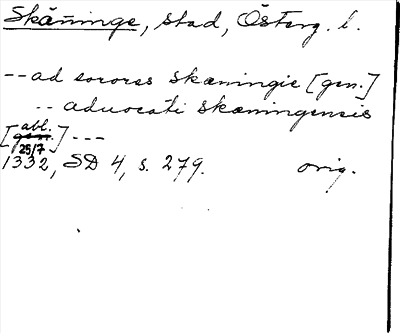 Skäninge, stad, Österg. l.
-- ad sorores Skæningie [gen.]
-- aduocati skæningensis
abl.
[gen.] ---
25/7
1332, SD 4, s. 279. orig.